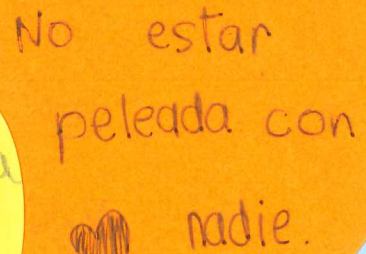 No estar
peleada con
nadie.